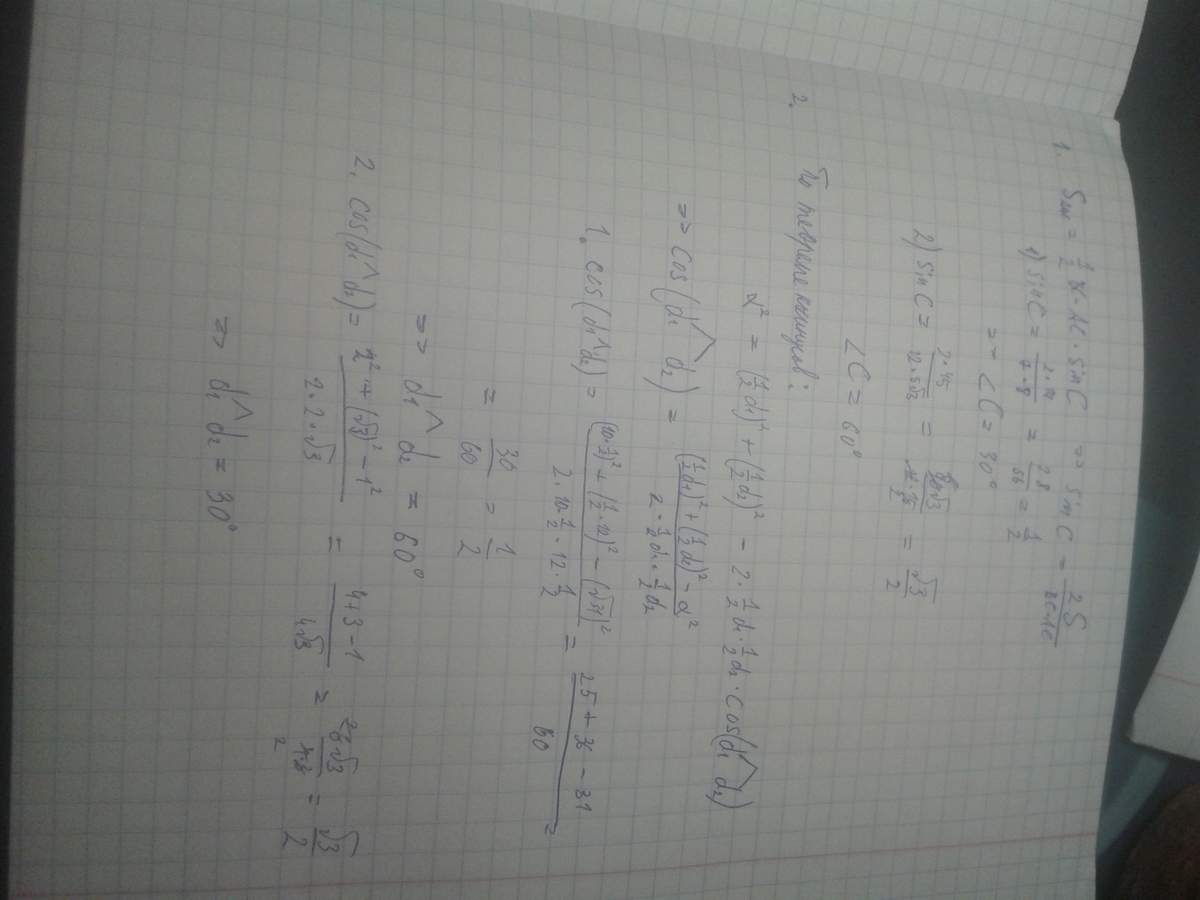 1. S = 1/2 BC · AC · sin C ⇒ sin C = 2S / BC·AC
1) sin C = 2·14 / 7·8 = 28/56 = 1/2
⇒ ∠C = 30°
2) sin C = 2·45 / = √3/2
∠C = 60°
2. По теореме косинусов:
a² = (1/2 d₁)² + (1/2 d₂)² − 2 · 1/2 d₁ · 1/2 d₂ · cos(d₁^d₂)
⇒ cos(d₁^d₂) = ((1/2 d₁)² + (1/2 d₂)² − a²) / (2 · 1/2 d₁ · 1/2 d₂)
1. cos(d₁^d₂) = ((10·1/2)² + (1/2 · )² − (√31)²) / (2 · 10 · 1/2 · 12 · 1/2) = (25 + 36 − 31) / 60 =
= 30/60 = 1/2
⇒ d₁^d₂ = 60°
2. cos(d₁^d₂) = (2² + (√3)² − 1²) / (2 · 2 · √3) = (4 + 3 − 1) / 4√3 = 6√3 / 4·3 = √3/2
⇒ d₁^d₂ = 30°